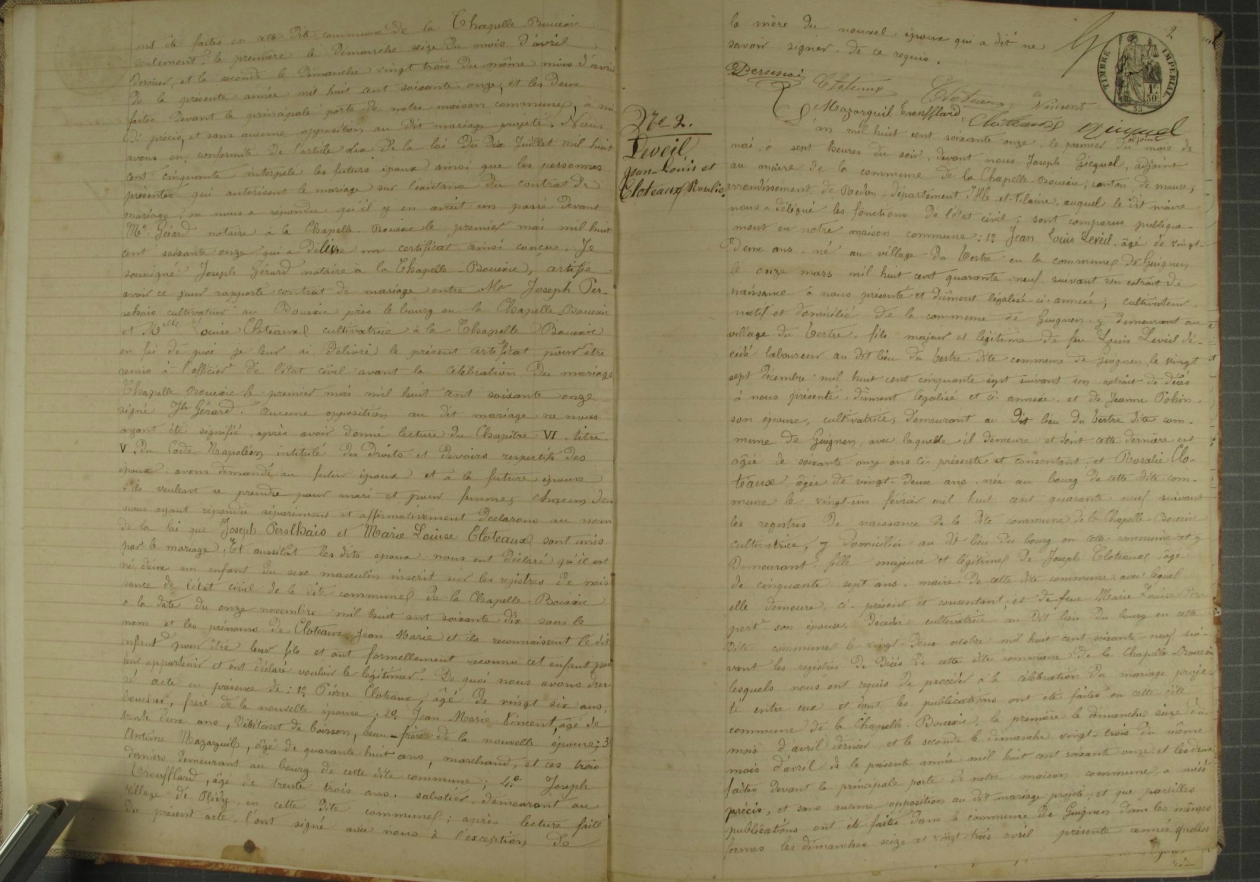 ont été faites en cette dite commune de la Chapelle Bouexic
seulement: la première le dimanche seize du mois d'avril
dernier, et la seconde le dimanche vingt trois du même mois d'avril
de la présente année mil huit cent soixante onze, et les deux
faites devant la principale porte de notre maison commune, à midi
précis, et sans aucune opposition au dit mariage projeté. Nous
avons, en conformité de l'article de la loi du dix Juillet mil huit
cent cinquante interpelé les futurs époux ainsi que les personnes
présentes qui autorisent le mariage sur l'existence du contrat de
mariage; on nous a répondu qu'il y en avait un passé devant
Me Gérard notaire à la Chapelle-Bouexic le premier mai mil huit
cent soixante onze qui a délivré un certificat ainsi conçu. Je
soussigné Joseph Gérard notaire à la Chapelle-Bouexic, certifie
avoir ce jour rapporté contrat de mariage entre Mr Joseph Per-
cultivateur au Bouexic près le bourg en la Chapelle Bouexic
et Melle Louise Cloteaux cultivatrice à la Chapelle Bouexic
en foi de quoi je leur ai délivré le présent certificat pour être
remis à l'officier de l'état civil avant la célébration du mariage
Chapelle Bouexic le premier mai mil huit cent soixante onze
signé Jh Gérard. Aucune opposition au dit mariage ne nous
ayant été signifié, après avoir donné lecture du Chapitre VI titre
V. du Code Napoléon intitulé des Droits et devoirs respectifs des
époux, avons demandé au futur époux et à la future épouse
s'ils veulent se prendre pour mari et pour femme, chacun d'eux
nous ayant répondu séparément et affirmativement déclarons au nom
de la loi que Joseph et Marie Louise Cloteaux sont unis
par le mariage. Et aussitôt les dits époux nous ont déclaré qu'il est
né d'eux un enfant du sexe masculin inscrit sur les registres de nais
sance de l'état civil de la dite commune de la Chapelle-Bouexic
à la date du onze novembre mil huit cent soixante dix sous le
nom et les prénoms de Cloteaux Jean Marie et ils reconnaissent le dit
enfant pour être leur fils et ont formellement reconnu cet enfant pour
leur appartenir et ont déclaré vouloir le légitimer. De quoi nous avons dres-
sé acte en présence de: 1º Pierre Cloteaux, âgé de vingt six ans,
boucher, frère de la nouvelle épouse; 2º Jean Marie Vincent, âgé de
trente deux ans, débitant de boisson, beau-frère de la nouvelle épouse; 3º
Antoine Mazarguil, âgé de quarante huit ans, marchand, et ces trois
derniers demeurant au bourg de cette dite commune; 4º Joseph
Creufflard, âgé de trente trois ans, sabotier, demeurant au
village de en cette dite commune; après lecture faite
du présent acte, l'ont signé avec nous à l'exception de
la mère du nouvel époux qui a dit ne
savoir signer de ce requis.
Cloteaux
Cloteaux Vincent
Mazarguil Creufflard Cloteaux Bicquel
adjoint
2
TIMBRE IMPERIAL
1f 50c
Nº 2.
Leveil,
Jean-Louis et
Cloteaux Rosalie
L'an mil huit cent soixante onze, le premier du mois de
mai, à sept heures du soir, devant nous Joseph Bicquel, adjoint
au maire de la commune de la Chapelle-Bouexic, canton de maure,
arrondissement de Redon, département d'Ille et Vilaine, auquel le dit maire
nous a délégué les fonctions de l'état civil; sont comparus publique-
ment en notre maison commune: 1º Jean Louis Leveil, âgé de vingt-
deux ans, né au village du Tertre en la commune de Guignen
le onze mars mil huit cent quarante neuf suivant un extrait de
naissance à nous présenté et dûment légalisé ci-annexé; cultivateur,
natif et domicilié de la commune de Guignen y demeurant au
village du Tertre, fils majeur et légitime de feu Louis Leveil dé-
cédé laboureur au dit lieu du Tertre dite commune de Guignen le vingt
sept décembre mil huit cent cinquante sept suivant son extrait de décès
à nous présenté dûment légalisé et ci annexé, et de Jeanne
son épouse, cultivatrice, demeurant au dit lieu du Tertre dite com-
mune de Guignen, avec laquelle il demeure et dont cette dernière est
âgée de soixante onze ans ci présente et consentant, et Rosalie Clo-
teaux, âgée de vingt-deux ans, née au bourg de cette dite com-
mune le vingt-un février mil huit cent quarante neuf suivant
les registres de naissance de la dite commune de la Chapelle-Bouexic
cultivatrice, y domiciliée au dit lieu du bourg en cette commune et y
demeurant, fille majeure et légitime de Joseph Cloteaux, âgé
de cinquante sept ans, maire de cette dite commune avec lequel
elle demeure, ci-présent et consentant, et de feue Marie Louise
son épouse, décédée cultivatrice au dit lieu du bourg en cette
dite commune le vingt deux octobre mil huit cent soixante-neuf sui-
vant les registres de décès de cette dite commune de la Chapelle-Bouexic
lesquels nous ont requis de procéder à la célébration du mariage proje-
té entre eux et dont les publications ont été faites en cette dite
commune de la Chapelle-Bouexic, la première le dimanche seize du
mois d'avril dernier, et la seconde le dimanche vingt-trois du même
mois d'avril de la présente année mil huit cent soixante onze et les deux
faites devant la principale porte de notre maison commune, à midi
précis, et sans aucune opposition au dit mariage projeté, et que pareilles
publications ont été faites dans la commune de Guignen dans les mêmes
formes les dimanches seize et vingt trois avril présente année,